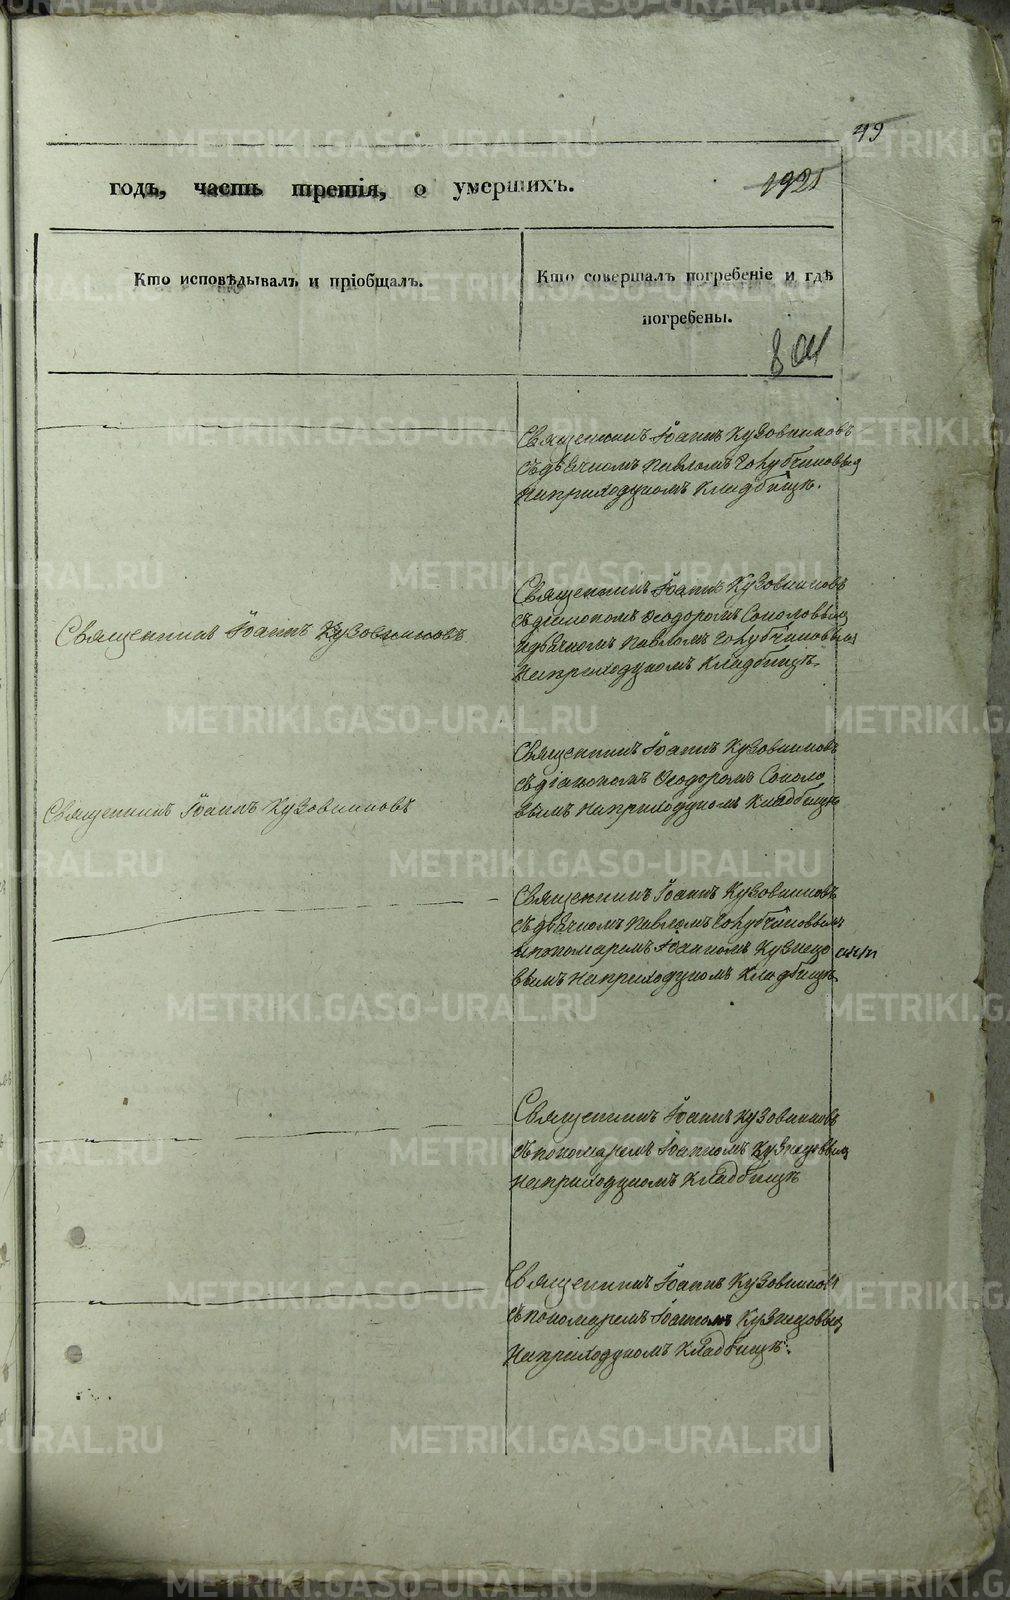 49
годъ, часть третія, о умершихъ.
1921
Кто исповѣдывалъ и пріобщалъ.
Кто совершалъ погребеніе и гдѣ
погребены.
801
Священникъ Іоаннъ Кузовниковъ
съ дьячкомъ Павломъ Голубчиковым
на приходскомъ кладбищѣ.
Священникъ Іоаннъ Кузовниковъ
Священникъ Іоаннъ Кузовниковъ
съ діакономъ Ѳеодоромъ Соколовым
и дьячкомъ Павломъ Голубчиковым
на приходскомъ кладбищѣ.
Священникъ Іоаннъ Кузовниковъ
Священникъ Іоаннъ Кузовниковъ
съ діакономъ Ѳеодоромъ Соколо
вымъ на приходскомъ кладбищѣ
Священникъ Іоаннъ Кузовниковъ
съ дьячкомъ Павломъ Голубчиковым
и пономаремъ Іоанномъ Кузнецо
вымъ на приходскомъ кладбищѣ.
Священникъ Іоаннъ Кузовниковъ
съ пономаремъ Іоанномъ Кузнецовым
на приходскомъ кладбищѣ
Священникъ Іоаннъ Кузовниковъ
съ пономаремъ Іоанномъ Кузнецовым
на приходскомъ кладбищѣ.
METRIKI.GASO-URAL.RU